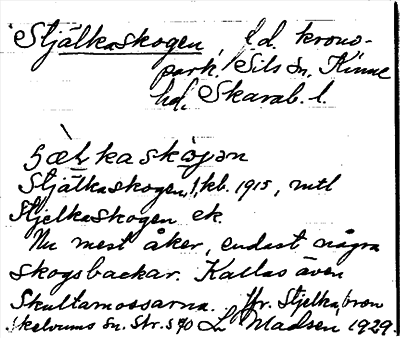 Stjälkaskogen, f.d. krono-
park. Sils sn, Kinne
hd, Skarab. l.
Stjälkaskogen, kb. 1915, mtl
Stjelkaskogen ek.
Nu mest åker, endast några
skogsbackar. Kallas även
Skultamossarna. Jfr. Stjelka, bron
Skelvums sn. Str. s 90 L. Madsen, 1929.